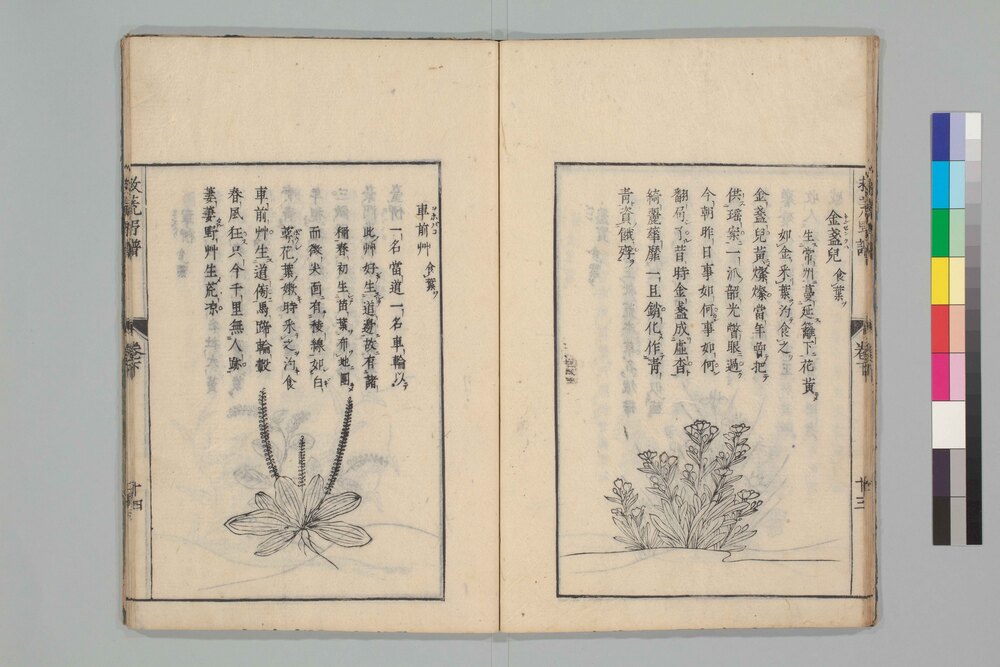 救荒野譜
卷下
十三
金盞兒 食葉
生常州蔓延籬下花黃
如金采葉灼食之
金盞兒黃燦燦當年曾把
供瑤案一派韶光瞥眼過
今朝昨日事如何事如何
翻局了昔時金盞成虛杳
綺蘿華靡一旦銷化作青
青資餓殍
車前艸 食葉
一名當道一名車輪以
此艸好生道邊故有諸
稱春初生苗葉布地團
而微尖面有稜線如白
菜花葉嫩時采之灼食
車前艸生道傍馬蹄輪轂
春風狂只今千里無人跡
萋萋野艸生荒凉
救荒野譜
卷下
十四